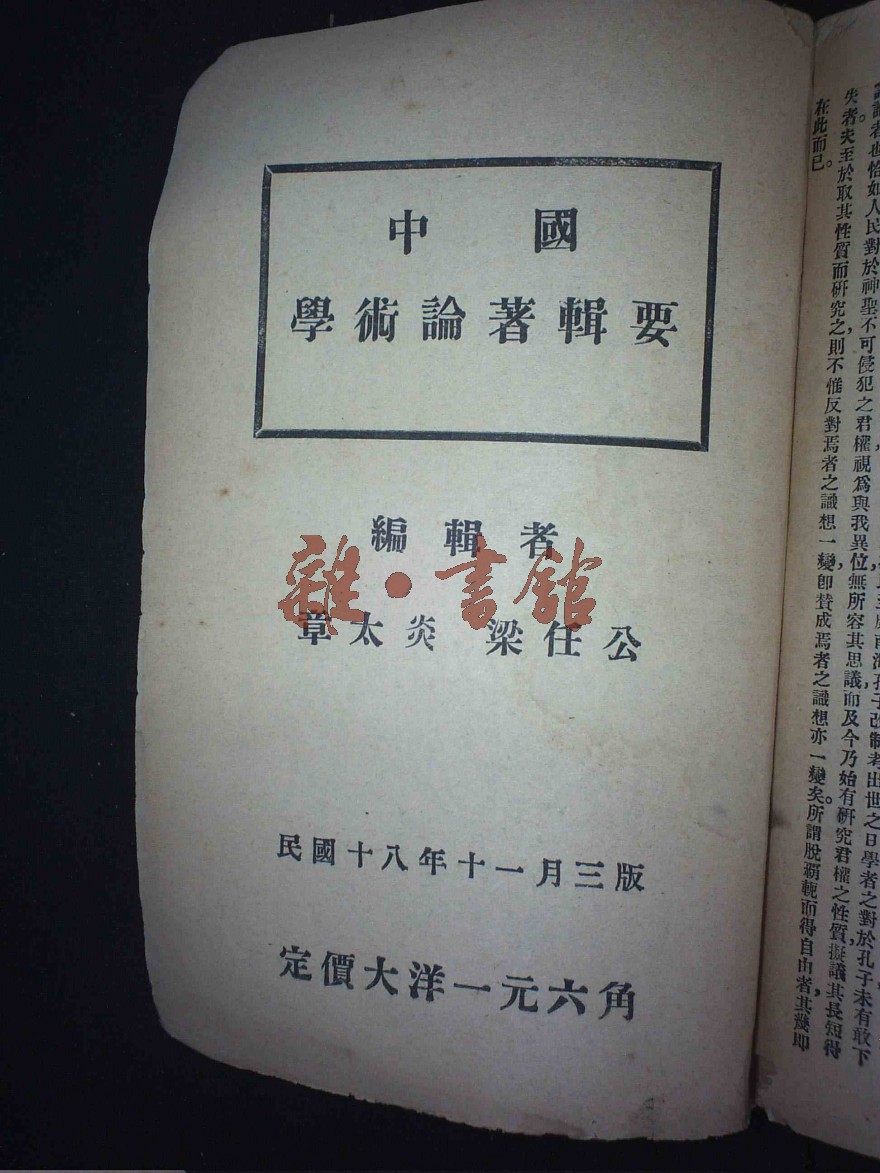 中國
學術論著輯要
編輯者
章太炎 梁任公
雜·書館
民國十八年十一月三版
定價大洋一元六角
者也恰如人民對於神聖不可侵犯之君權視爲與我異位，無所容其思議，而及今乃始有研究君權之性質，擬議其長短得
失者。夫至於取其性質而研究之，則不惟反對焉者之識想一變，卽贊成焉者之識想亦一變矣。所謂脫羈軛而得自由者，其幾卽
在此而已。